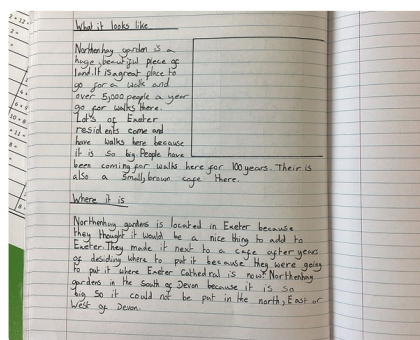 What it looks like
Northenhay garden is a
huge, beautiful piece of
land. It is a great place to
go for a walk and
over 5,000 people a year
go for walks there.
Lot's of Exeter
residents come and
have walks here because
it is so big. People have
been coming for walks here for 100 years. Their is
also a small, brown cafe there.
Where it is
Northenhay gardens is located in Exeter because
they thought it would be a nice thing to add to
Exeter. They made it next to a cafe after years
of desiding where to put it because they were going
to put it where Exeter Cathedral is now. Northenhay
gardens in the South of Devon because it is so
big so it could not be put in the north, East or
West of Devon.